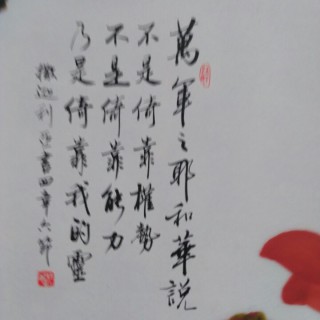 萬軍之耶和華説
不是倚靠權勢
不是倚靠能力
乃是倚靠我的靈
撒迦利亞書四章六節